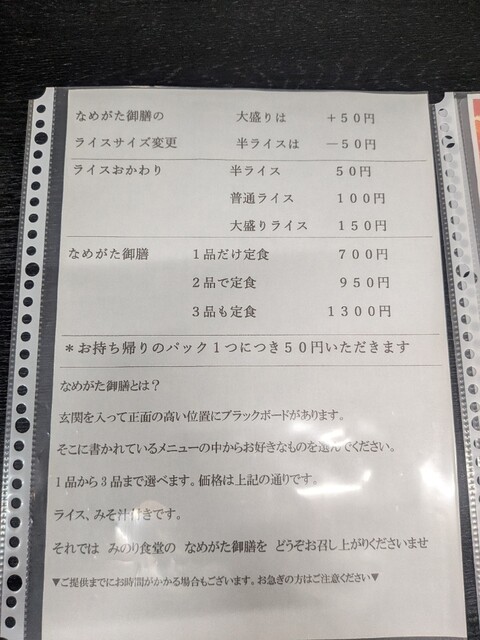 なめがた御膳の 大盛りは +50円
ライスサイズ変更 半ライスは −50円
ライスおかわり 半ライス 50円
普通ライス 100円
大盛りライス 150円
なめがた御膳 1品だけ定食 700円
2品で定食 950円
3品も定食 1300円
*お持ち帰りのパック1つにつき50円いただきます
なめがた御膳とは？
玄関を入って正面の高い位置にブラックボードがあります。
そこに書かれているメニューの中からお好きなものを選んでください。
1品から3品まで選べます。価格は上記の通りです。
ライス、みそ汁付きです。
それでは みのり食堂の なめがた御膳を どうぞお召し上がりくださいませ
▼ご提供までにお時間がかかる場合もございます。お急ぎの方はご注意ください▼